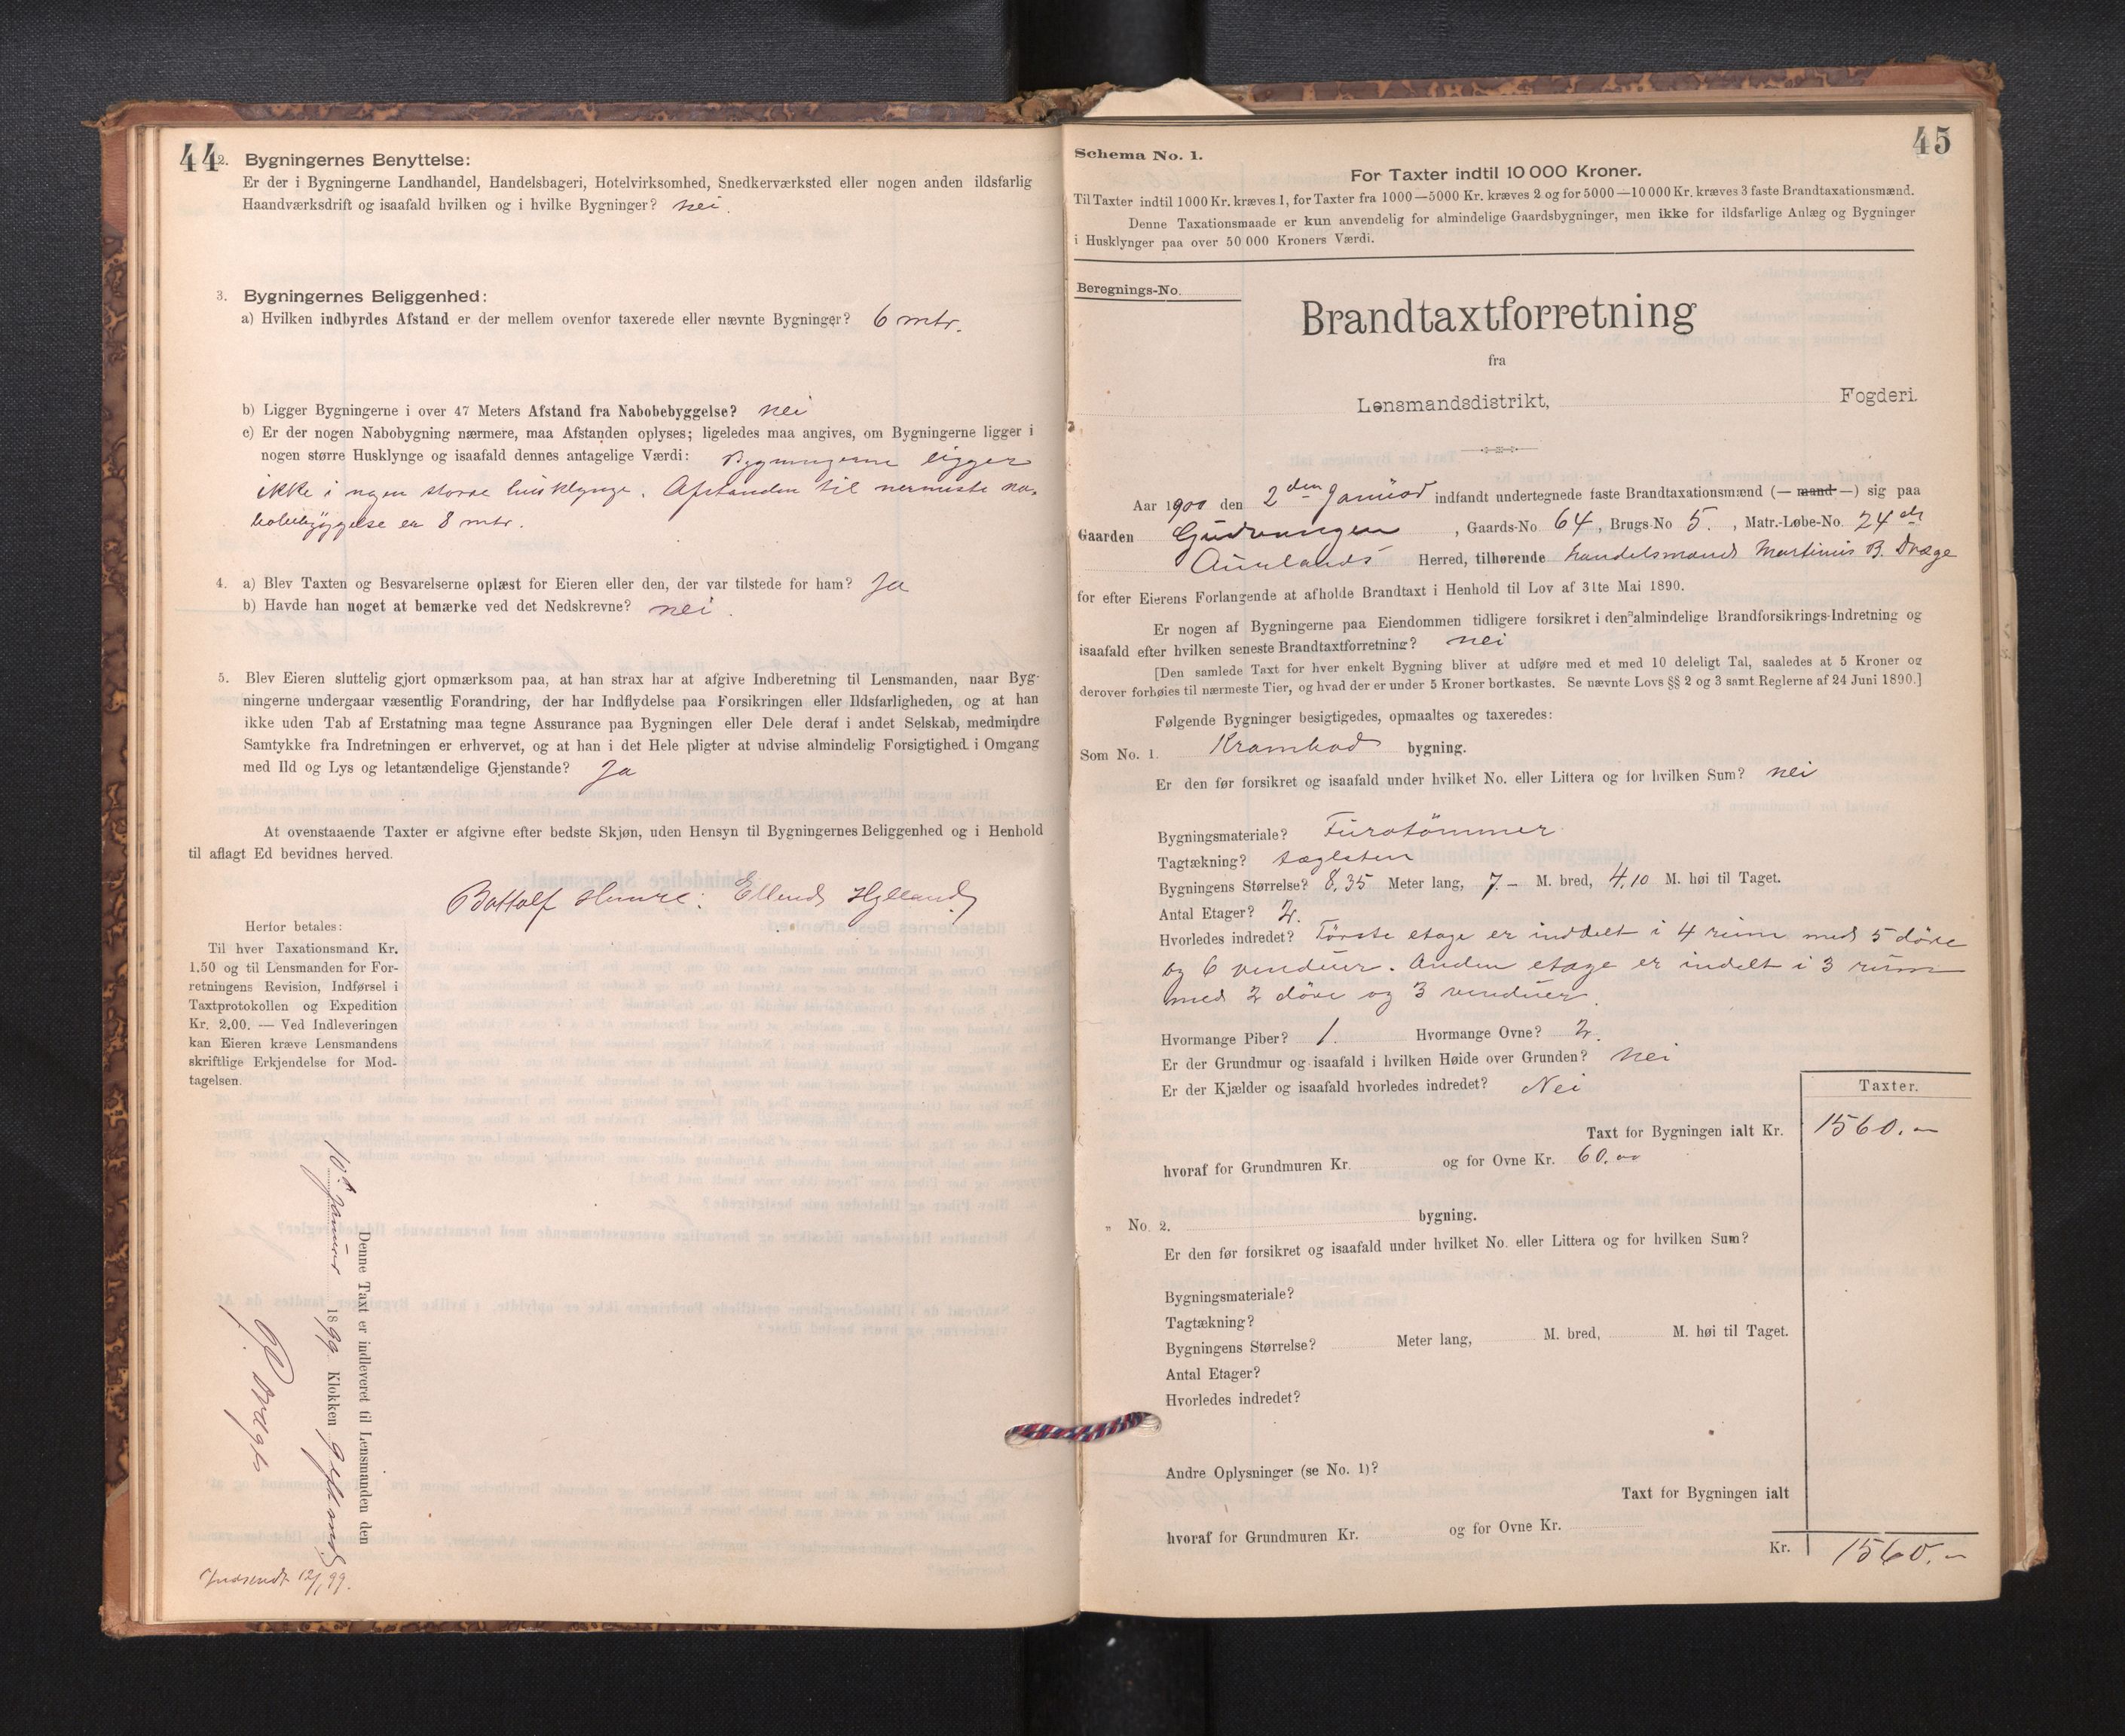 44
2. Bygningernes Benyttelse:
Er der i Bygningerne Landhandel, Handelsbageri, Hotelvirksomhed, Snedkerværksted eller nogen anden ildsfarlig
Haandværksdrift og isaafald hvilken og i hvilke Bygninger? nei.
3. Bygningernes Beliggenhed:
a) Hvilken indbyrdes Afstand er der mellem ovenfor taxerede eller nævnte Bygninger? 6 mtr.
b) Ligger Bygningerne i over 47 Meters Afstand fra Nabobebyggelse? nei
c) Er der nogen Nabobygning nærmere, maa Afstanden oplyses; ligeledes maa angives, om Bygningerne ligger i
nogen større Husklynge og isaafald dennes antagelige Værdi: Bygningerne ligger
ikke i nogen større husklynge. Afstanden til nermeste na-
bobebyggelse er 8 mtr.
4. a) Blev Taxten og Besvarelserne oplæst for Eieren eller den, der var tilstede for ham? Ja
b) Havde han noget at bemærke ved det Nedskrevne? nei.
5. Blev Eieren sluttelig gjort opmærksom paa, at han strax har at afgive Indberetning til Lensmanden, naar Byg-
ningerne undergaar væsentlig Forandring, der har Indflydelse paa Forsikringen eller Ildsfarligheden, og at han
ikke uden Tab af Erstatning maa tegne Assurance paa Bygningen eller Dele deraf i andet Selskab, medmindre
Samtykke fra Indretningen er erhvervet, og at han i det Hele pligter at udvise almindelig Forsigtighed i Omgang
med Ild og Lys og letantændelige Gjenstande? Ja
At ovenstaaende Taxter er afgivne efter bedste Skjøn, uden Hensyn til Bygningernes Beliggenhed og i Henhold
til aflagt Ed bevidnes herved.
Bottolf Hunre. Ellend Hylland
Herfor betales:
Til hver Taxationsmand Kr.
1.50 og til Lensmanden for For-
retningens Revision, Indførsel i
Taxtprotokollen og Expedition
Kr. 2.00. — Ved Indleveringen
kan Eieren kræve Lensmandens
skriftlige Erkjendelse for Mod-
tagelsen.
Denne Taxt er indleveret til Lensmanden den
10de Januar 1899. Klokken 9 eftmd
Indsendt 12/1 99.
45
Schema No. 1.
For Taxter indtil 10 000 Kroner.
Til Taxter indtil 1000 Kr. kræves 1, for Taxter fra 1000—5000 Kr. kræves 2 og for 5000—10 000 Kr. kræves 3 faste Brandtaxationsmænd.
Denne Taxationsmaade er kun anvendelig for almindelige Gaardsbygninger, men ikke for ildsfarlige Anlæg og Bygninger
i Husklynger paa over 50 000 Kroners Værdi.
Beregnings-No.
Brandtaxtforretning
fra
Lensmandsdistrikt, Fogderi.
Aar 1900 den 2den Januar indfandt undertegnede faste Brandtaxationsmænd (— mand —) sig paa
Gaarden Gudvangen, Gaards-No 64, Brugs-No 5., Matr.-Løbe-No. 24 de
Aurlands Herred, tilhørende handelsmand Martinus B. Dræge
for efter Eierens Forlangende at afholde Brandtaxt i Henhold til Lov af 31te Mai 1890.
Er nogen af Bygningerne paa Eiendommen tidligere forsikret i den almindelige Brandforsikrings-Indretning og
isaafald efter hvilken seneste Brandtaxtforretning? nei
[Den samlede Taxt for hver enkelt Bygning bliver at udføre med et med 10 deleligt Tal, saaledes at 5 Kroner og
derover forhøies til nærmeste Tier, og hvad der er under 5 Kroner bortkastes. Se nævnte Lovs §§ 2 og 3 samt Reglerne af 24 Juni 1890.]
Følgende Bygninger besigtigedes, opmaaltes og taxeredes:
Som No. 1. Krambod bygning.
Er den før forsikret og isaafald under hvilket No. eller Littera og for hvilken Sum? nei
Bygningsmateriale? Furutømmer
Tagtækning? taglsten
Bygningens Størrelse? 8,35 Meter lang, 7.– M. bred, 4,10 M. høi til Taget.
Antal Etager? 2.
Hvorledes indredet? Første etage er inddelt i 4 rum med 5 døre
og 6 venduer. Anden etage er indelt i 3 rum
med 2 døre og 3 venduer.
Hvormange Piber? 1. Hvormange Ovne? 2.
Er der Grundmur og isaafald i hvilken Høide over Grunden? Nei
Er der Kjælder og isaafald hvorledes indredet? Nei
Taxter.
Taxt for Bygningen ialt Kr. 1560.–
hvoraf for Grundmuren Kr. og for Ovne Kr. 60.00
„ No. 2. bygning.
Er den før forsikret og isaafald under hvilket No. eller Littera og for hvilken Sum?
Bygningsmateriale?
Tagtækning?
Bygningens Størrelse? Meter lang, M. bred, M. høi til Taget.
Antal Etager?
Hvorledes indredet?
Andre Oplysninger (se No. 1)?
Taxt for Bygningen ialt
hvoraf for Grundmuren Kr. og for Ovne Kr.
Kr. 1560.–